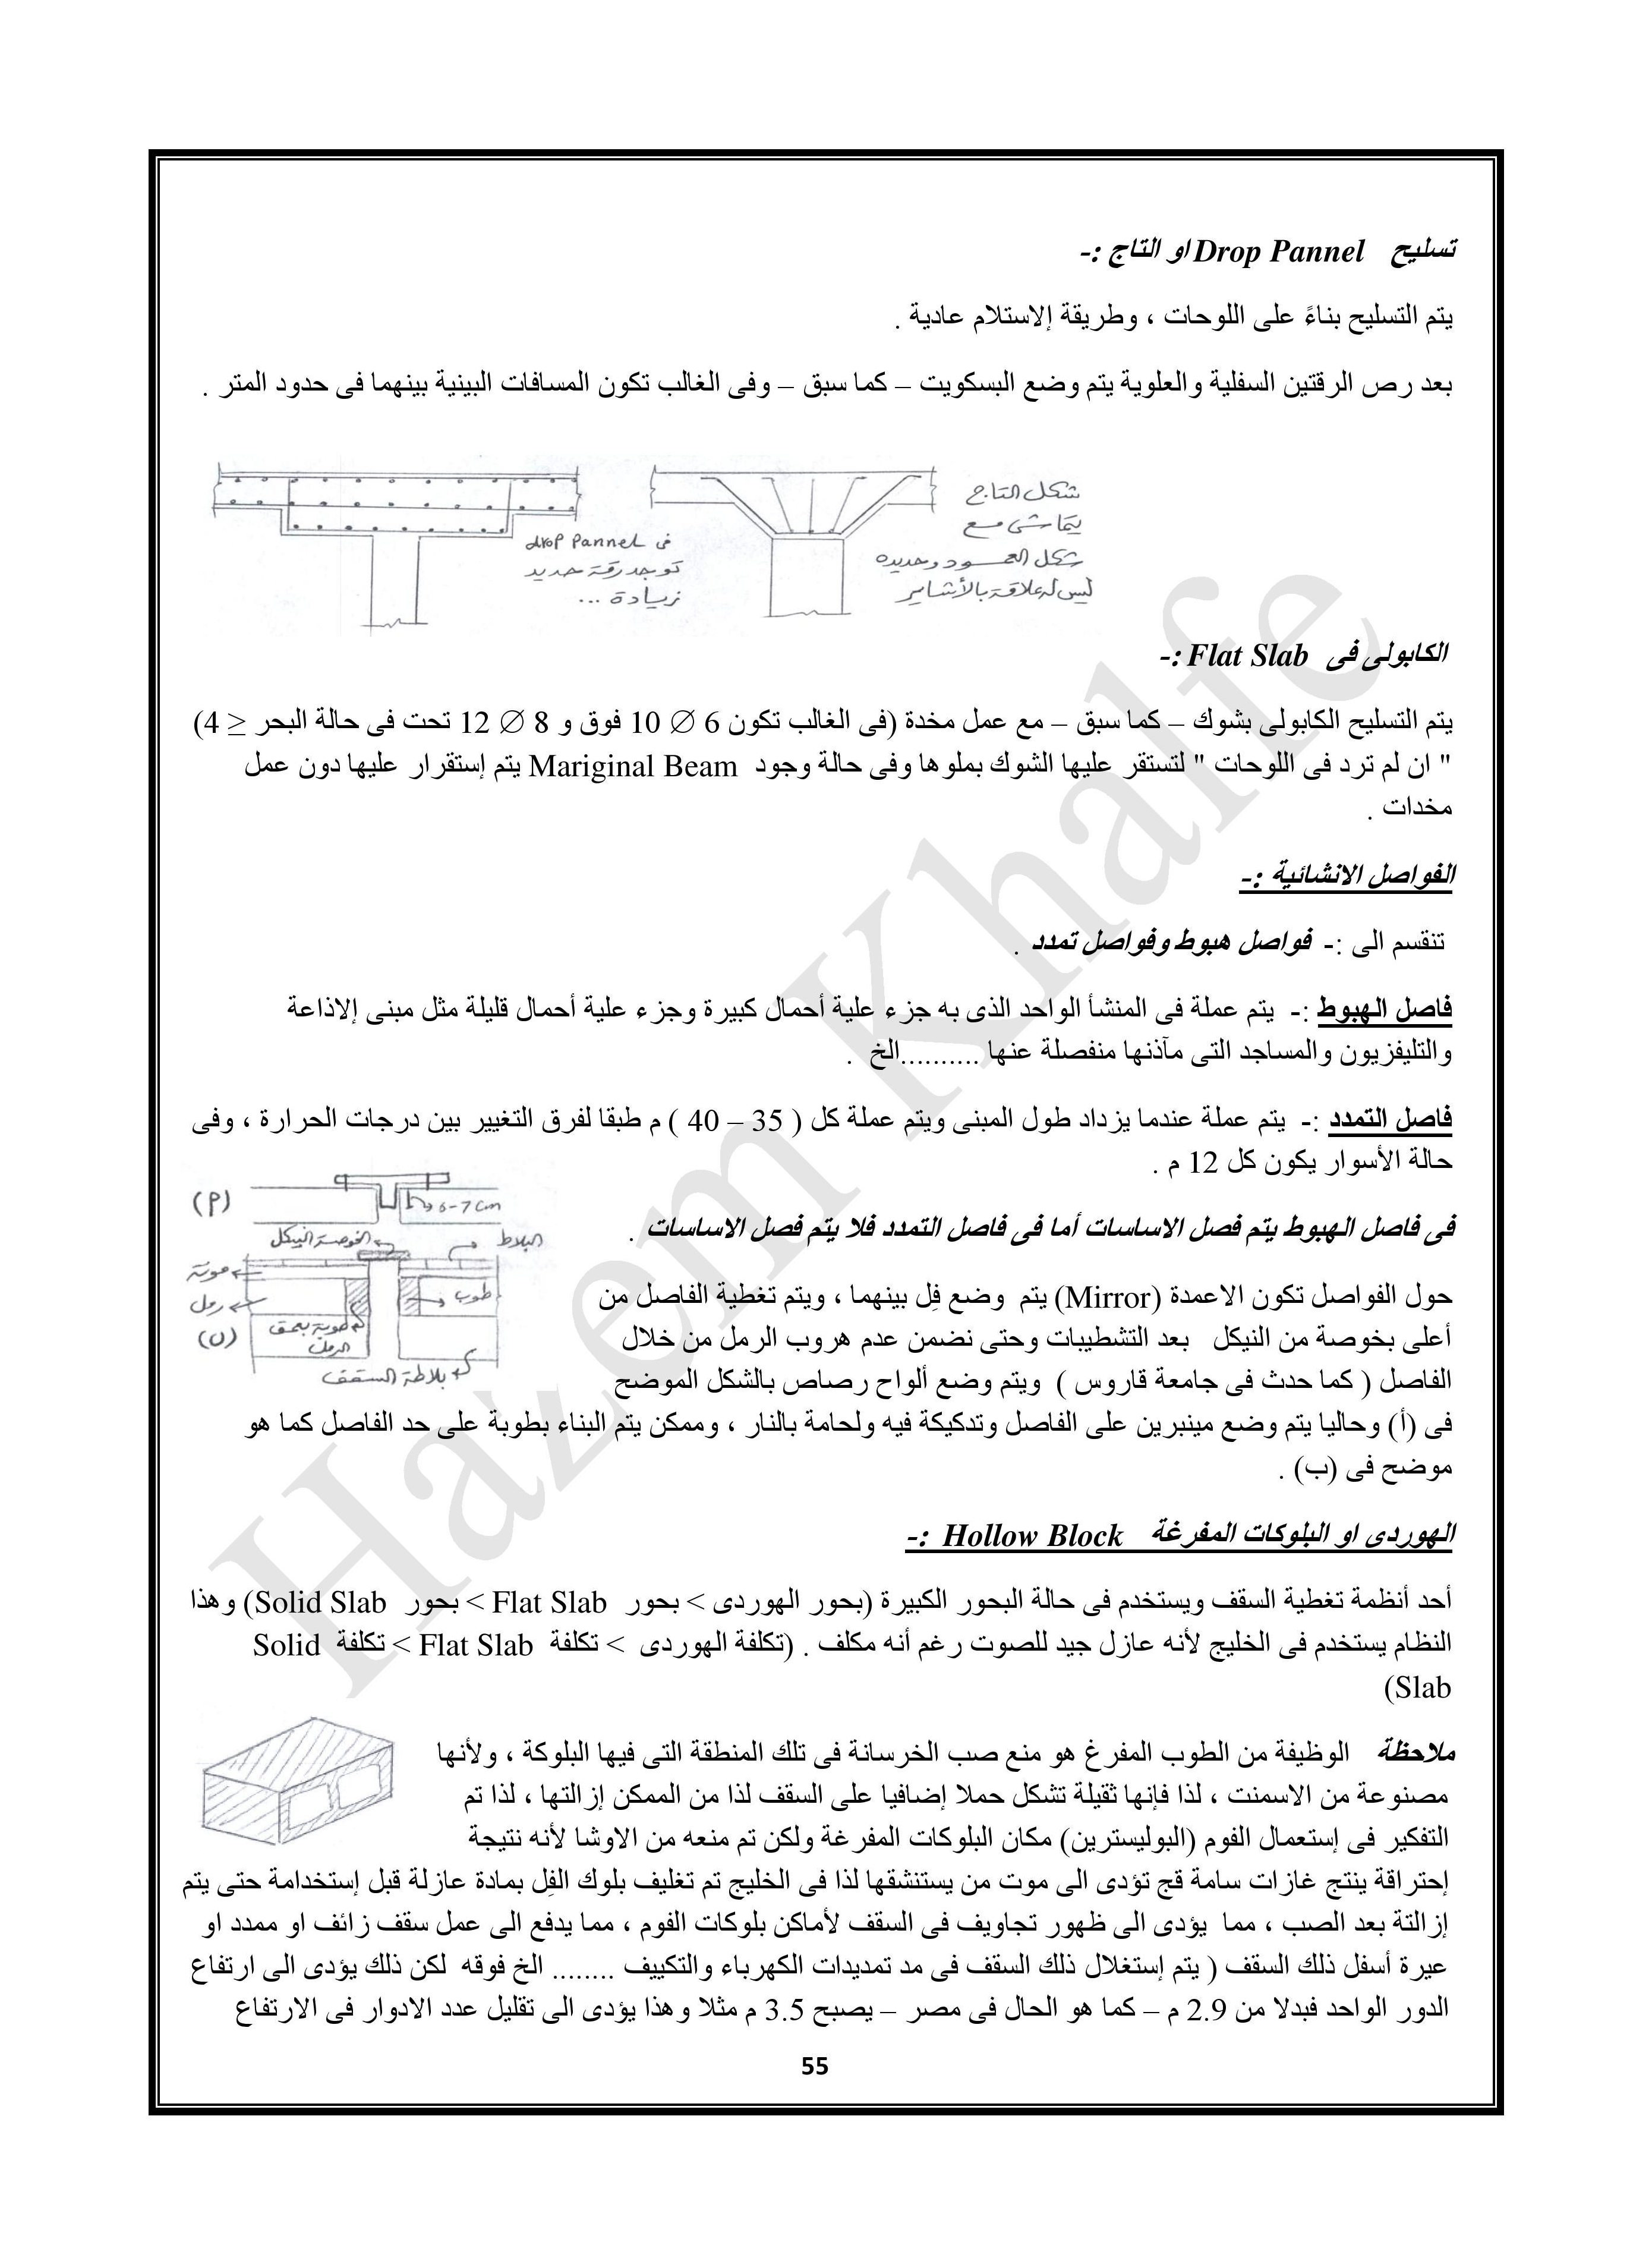 تسليح Drop Pannel او التاج :-
يتم التسليح بناءً على اللوحات ، وطريقة إلاستلام عادية .
بعد رص الرقتين السفلية والعلوية يتم وضع البسكويت – كما سبق – وفى الغالب تكون المسافات البينية بينهما فى حدود المتر .
شكل التاج
يتماشى مع
شكل العمود وحديده
ليس له علاقة بالأشاير
فى drop Pannel
توجد رقة حديد
زيادة ...
الكابولى فى Flat Slab :-
يتم التسليح الكابولى بشوك – كما سبق – مع عمل مخدة (فى الغالب تكون 6 ∅ 10 فوق و 8 ∅ 12 تحت فى حالة البحر ≥ 4)
" ان لم ترد فى اللوحات " لتستقر عليها الشوك بملوها وفى حالة وجود Mariginal Beam يتم إستقرار عليها دون عمل
مخدات .
الفواصل الانشائية :-
تنقسم الى :- فواصل هبوط وفواصل تمدد .
فاصل الهبوط :- يتم عملة فى المنشأ الواحد الذى به جزء علية أحمال كبيرة وجزء علية أحمال قليلة مثل مبنى إلاذاعة
والتليفزيون والمساجد التى مآذنها منفصلة عنها ..........الخ .
فاصل التمدد :- يتم عملة عندما يزداد طول المبنى ويتم عملة كل ( 35 – 40 ) م طبقا لفرق التغيير بين درجات الحرارة ، وفى
حالة الأسوار يكون كل 12 م .
(أ)
6-7 cm
البلاط
الخوصة النيكل
مونة
رمل
طوب
طوبة بعمق
الرمل
(ب)
بلاطة السقف
فى فاصل الهبوط يتم فصل الاساسات أما فى فاصل التمدد فلا يتم فصل الاساسات .
حول الفواصل تكون الاعمدة (Mirror) يتم وضع فِل بينهما ، ويتم تغطية الفاصل من
أعلى بخوصة من النيكل بعد التشطيبات وحتى نضمن عدم هروب الرمل من خلال
الفاصل ( كما حدث فى جامعة قاروس ) ويتم وضع ألواح رصاص بالشكل الموضح
فى (أ) وحاليا يتم وضع مينبرين على الفاصل وتدكيكة فيه ولحامة بالنار ، وممكن يتم البناء بطوبة على حد الفاصل كما هو
موضح فى (ب) .
الهوردى او البلوكات المفرغة Hollow Block :-
أحد أنظمة تغطية السقف ويستخدم فى حالة البحور الكبيرة (بحور الهوردى > بحور Flat Slab > بحور Solid Slab) وهذا
النظام يستخدم فى الخليج لأنه عازل جيد للصوت رغم أنه مكلف . (تكلفة الهوردى > تكلفة Flat Slab > تكلفة Solid
Slab)
ملاحظة الوظيفة من الطوب المفرغ هو منع صب الخرسانة فى تلك المنطقة التى فيها البلوكة ، ولأنها
مصنوعة من الاسمنت ، لذا فإنها ثقيلة تشكل حملا إضافيا على السقف لذا من الممكن إزالتها ، لذا تم
التفكير فى إستعمال الفوم (البوليسترين) مكان البلوكات المفرغة ولكن تم منعه من الاوشا لأنه نتيجة
إحتراقة ينتج غازات سامة قج تؤدى الى موت من يستنشقها لذا فى الخليج تم تغليف بلوك الفِل بمادة عازلة قبل إستخدامة حتى يتم
إزالتة بعد الصب ، مما يؤدى الى ظهور تجاويف فى السقف لأماكن بلوكات الفوم ، مما يدفع الى عمل سقف زائف او ممدد او
عيرة أسفل ذلك السقف ( يتم إستغلال ذلك السقف فى مد تمديدات الكهرباء والتكييف ........ الخ فوقه لكن ذلك يؤدى الى ارتفاع
الدور الواحد فبدلا من 2.9 م – كما هو الحال فى مصر – يصبح 3.5 م مثلا وهذا يؤدى الى تقليل عدد الادوار فى الارتفاع
55
Hazem Khalfe